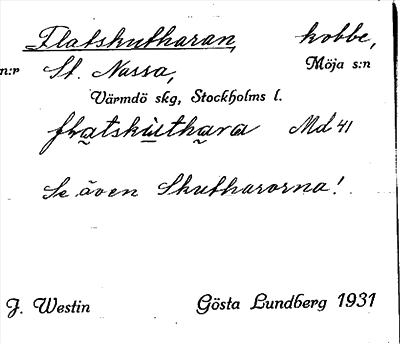 Flatskutharan, kobbe,
n:r St. Nassa, Möja s:n
Värmdö skg, Stockholms l.
flatskùthara Md 41
Se även Skutharorna!
J. Westin Gösta Lundberg 1931